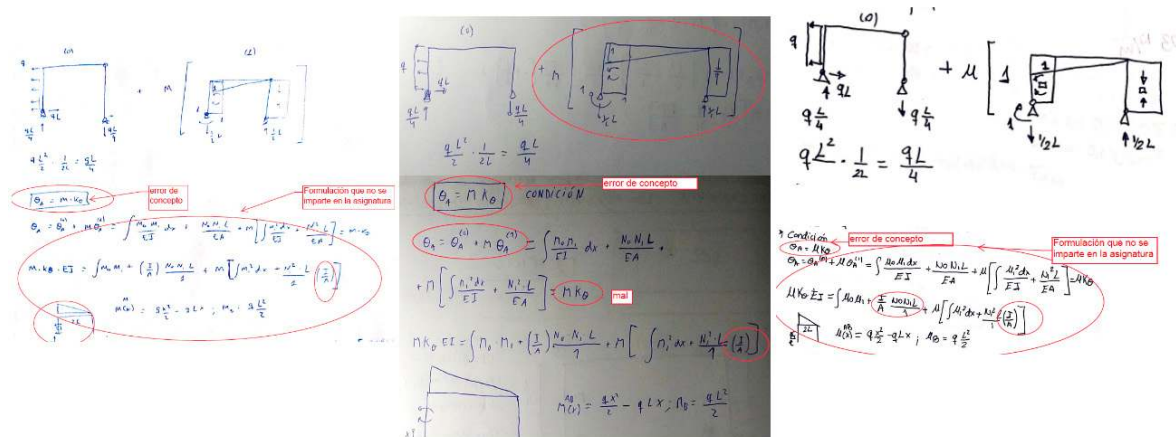 (0)
(1)
q
+ M
qL
1
1
qL/4
qL/4
1/2L
qL²/2 · 1/2L = qL/4
θA = M·Kθ
error de
concepto
Formulación que no se
imparte en la asignatura
θA = θA^(0) + M θA^(1) = ∫ M0 M1/EI dx + N0 N1 L/EA + M [∫ M1² dx/EI + N1² L/EA] = M·Kθ
M·Kθ·EI = ∫ M0 M1 + (I/A) N0 N1 L/1 + M [∫ M1² dx + N1² · L/1 (I/A)]
M(x) = qx²/2 - qLx ; MB = qL²/2
2L
(0)
q
+ M
1
1
1
qL
qL/4
qL/4
qL²/2 · 1/2L = qL/4
θA = M Kθ
CONDICIÓN
error de concepto
θA = θA^(0) + M θA^(1) = ∫ M0 M1/EI dx + N0 N1 L/EA +
+ M [∫ M1² dx/EI + N1² · L/EA] = M Kθ
mal
M Kθ EI = ∫ M0 · M1 + (I/A) N0 · N1 · L/1 + M [∫ M1² dx + N1² · L/1 = (I/A)]
M(x)^AB = qx²/2 - qLx ; MB = qL²/2
(0)
q
+ M
1
1
qL
qL/4
qL/4
1
1/2L
1/2L
qL²/ · 1/2L = qL/4
* Condición
error de concepto
Formulación que no se
imparte en la asignatura
θA = MKθ
θA = θA^(0) + MθA^(1) = ∫ M0M1dx/EI + N0N1L/EA + M [∫ M1²dx/EI + N1²L/EA] = MKθ
MKθ EI = ∫ M0M1 + I/A N0N1L/1 + M [∫ M1²dx + N1²L/1 (I/A)]
2L
M(x)^AB = q x²/2 - qLx ; MB = q L²/2